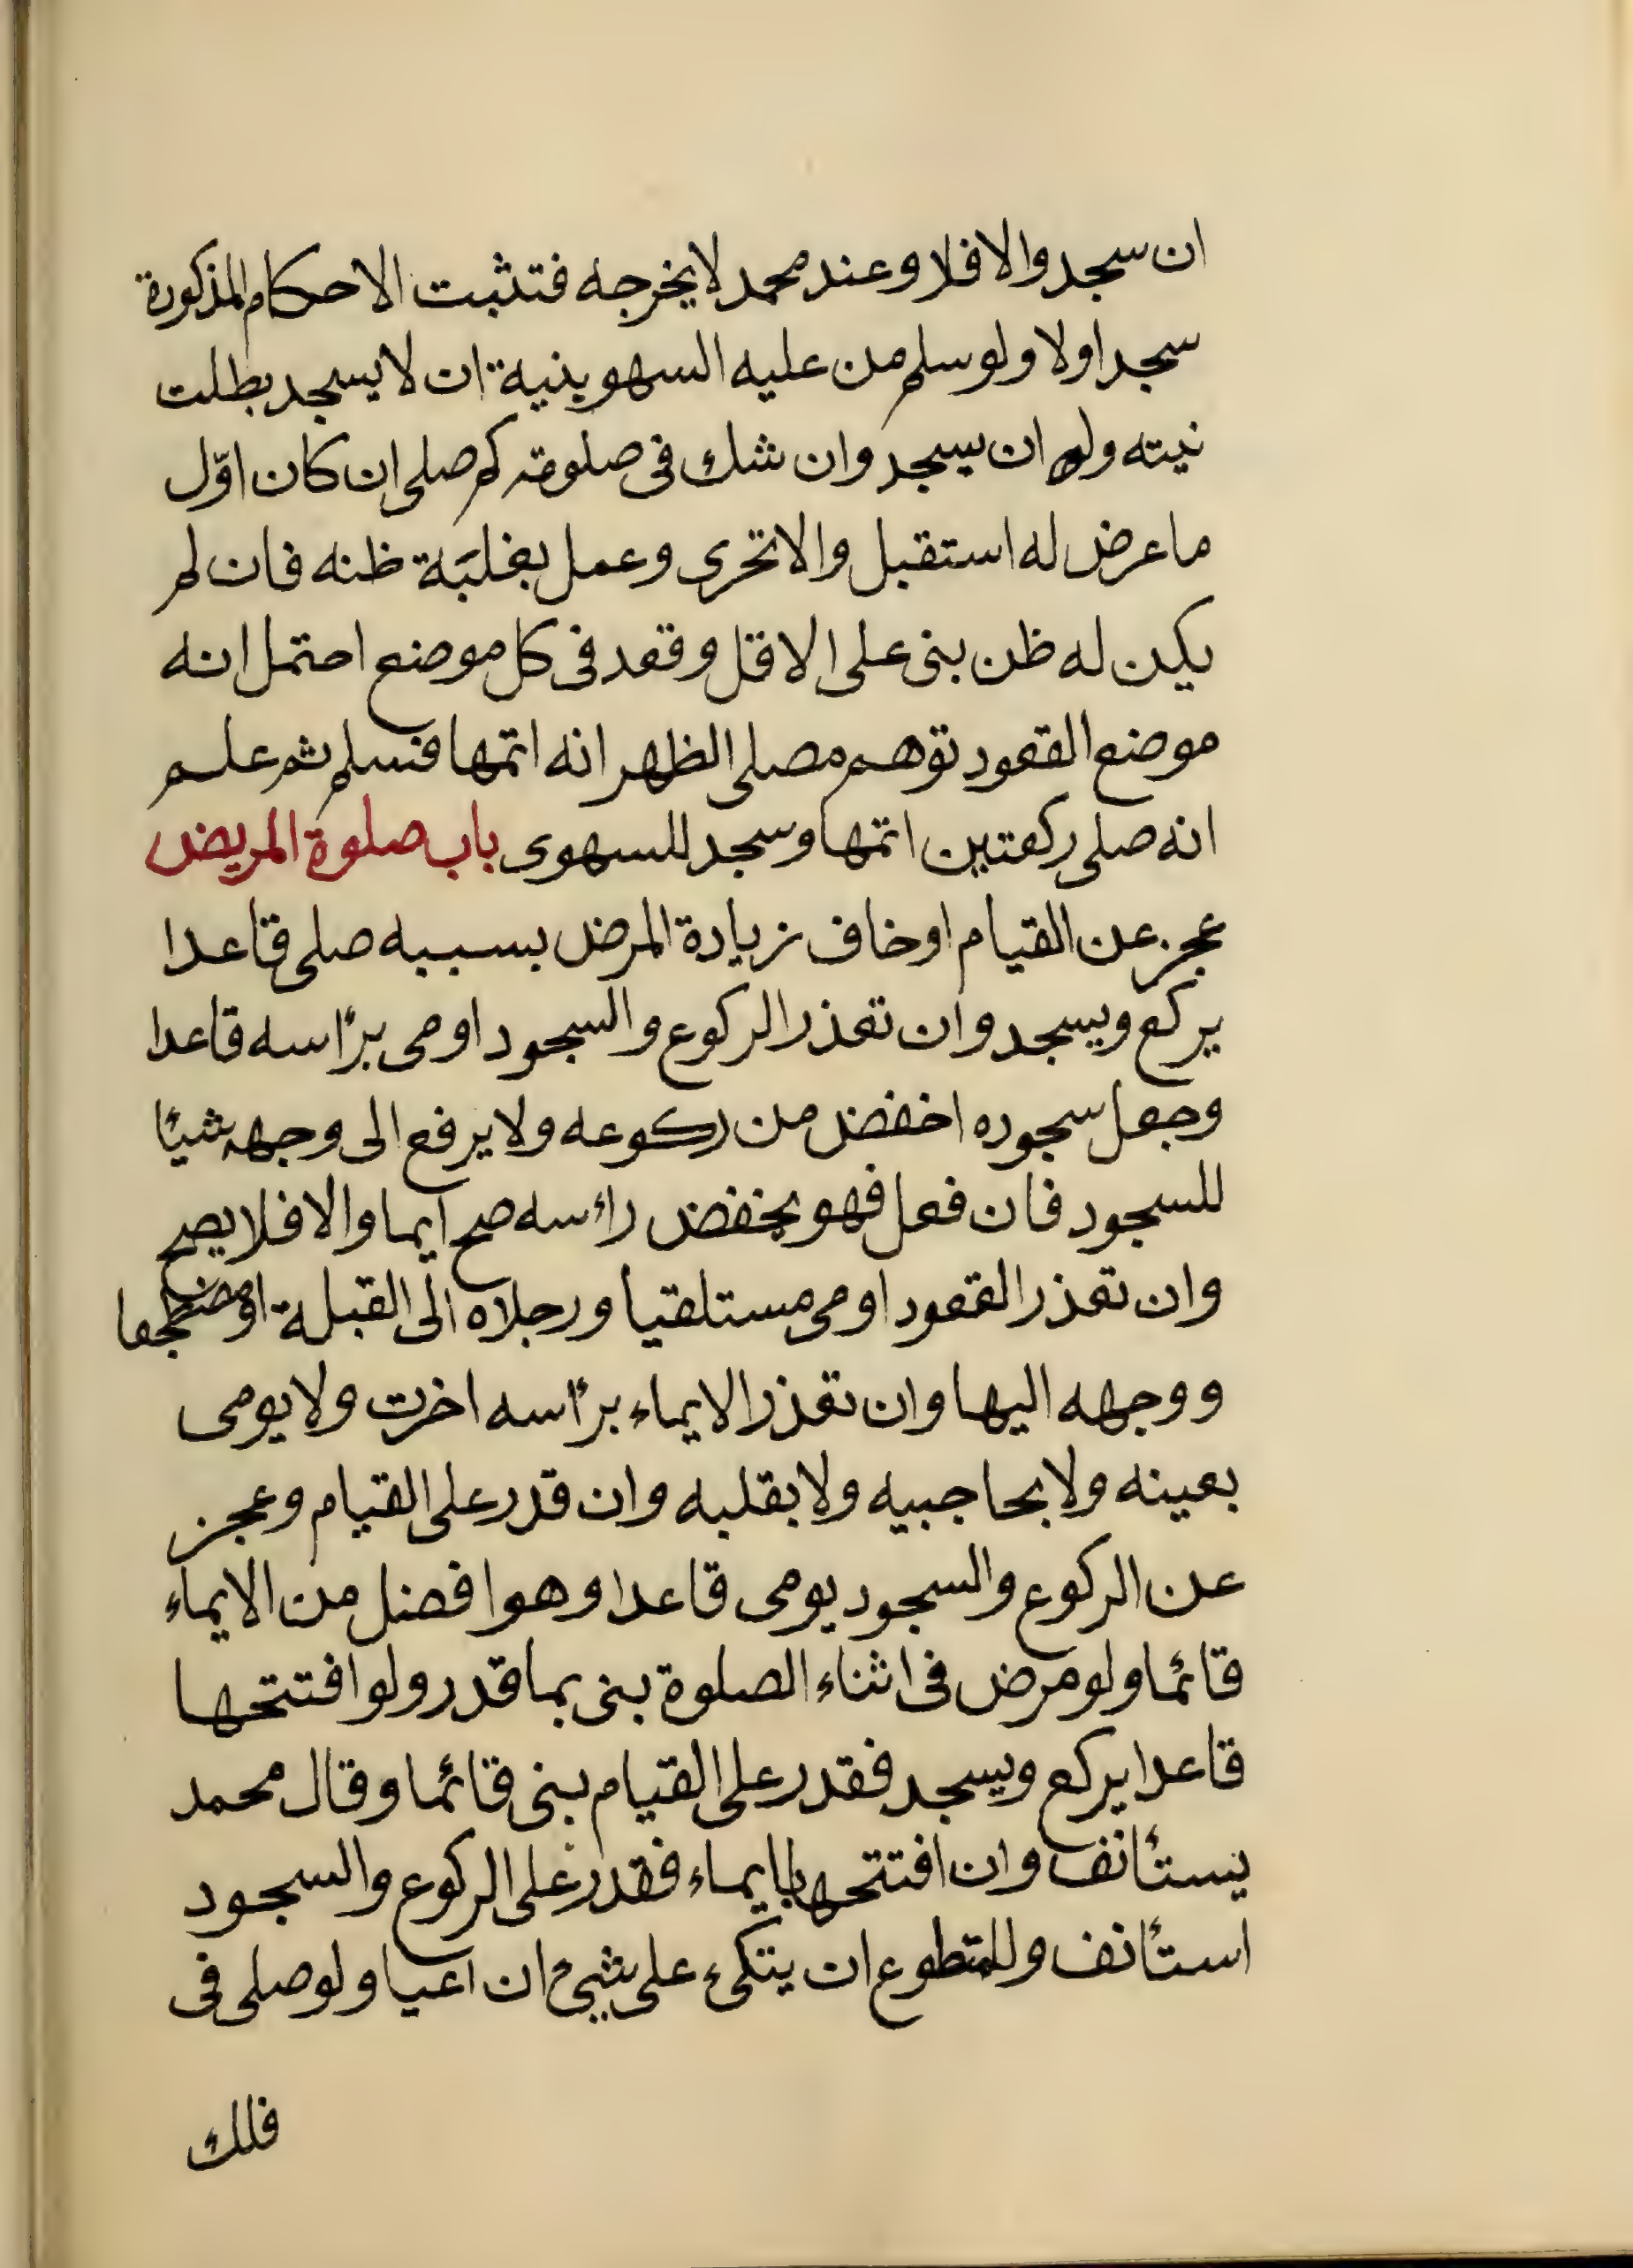 ان سجد والا فلا وعند محمد لا يخرجه فتثبت الاحكام المذكورة
سجد اولا ولو سلم من عليه السهو بنية ان لا يسجد بطلت
نيته وله ان يسجد وان شك فى صلوته كم صلى ان كان اوّل
ما عرض له استقبل والا تحرى وعمل بغلبَة ظنه فان لم
يكن له ظن بنى على الاقل وقعد فى كل موضع احتمل انه
موضع القعود توهم مصلى الظهر انه اتمها فسلم ثم علم
انه صلى ركعتين اتمها وسجد للسهوى باب صلوة المريض
عجز عن القيام او خاف زيادة المرض بسببه صلى قاعدا
يركع ويسجد وان تعذر الركوع والسجود اومى برأسه قاعدا
وجعل سجوده اخفض من ركوعه ولا يرفع الى وجهه شيئا
للسجود فان فعل فهو يخفض راءسه صح ايما والا فلا يصح
وان تعذر القعود اومى مستلقيا ورجلاه الى القبلة او مضطجعا
ووجهه اليها وان تعذر الايماء برأسه اخرت ولا يومى
بعينه ولا بحاجبيه ولا بقلبه وان قدر على القيام وعجز
عن الركوع والسجود يومى قاعدا وهو افضل من الايماء
قائما ولو مرض فى اثناء الصلوة بنى بما قدر ولو افتتحها
قاعدا يركع ويسجد فقدر على القيام بنى قائما وقال محمد
يستأنف وان افتتحها بايماء فقدر على الركوع والسجود
استأنف وللمتطوع ان يتكىء على شىء ان اعيا ولو صلى فى
فلك